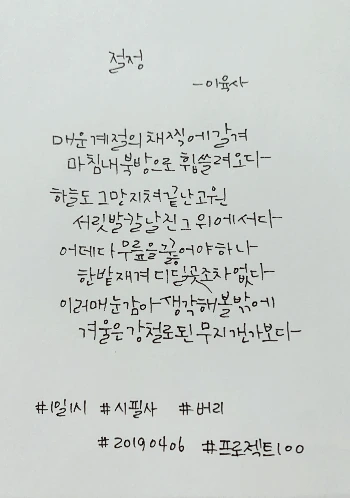 절정
-이육사
매운 계절의 채찍에 갈겨
마침내 북방으로 휩쓸려오다
하늘도 그만 지쳐 끝난 고원
서릿발 칼날진 그 위에 서다
어데다 무릎을 꿇어야 하나
한발 재겨 디딜 곳조차 없다
이러매 눈 감아 생각해 볼밖에
겨울은 강철로 된 무지갠가보다
#1일1시 #시필사 #버리
#20190406 #프로젝트100